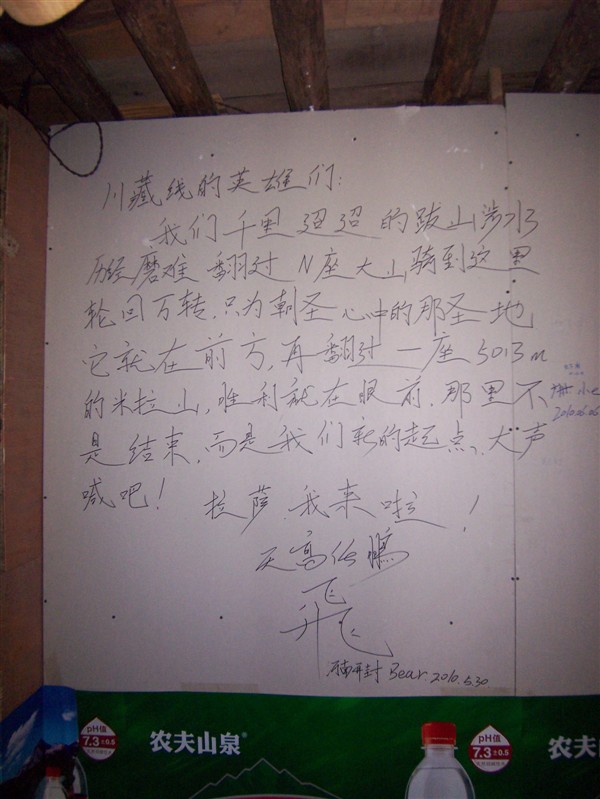 川藏线的英雄们:
我们千里迢迢的跋山涉水
历经磨难翻过N座大山骑到这里
轮回万转.只为朝圣心中的那圣地
它就在前方,再翻过一座5013m
的米拉山,胜利就在眼前.那里不
是结束,而是我们新的起点、大声
喊吧! 拉萨.我来啦!
天高任鹏
飛
河南开封 Bear 2010.5.30
2010.06.06
pH值
7.3±0.5
农夫山泉®
pH值
7.3±0.5
农夫山